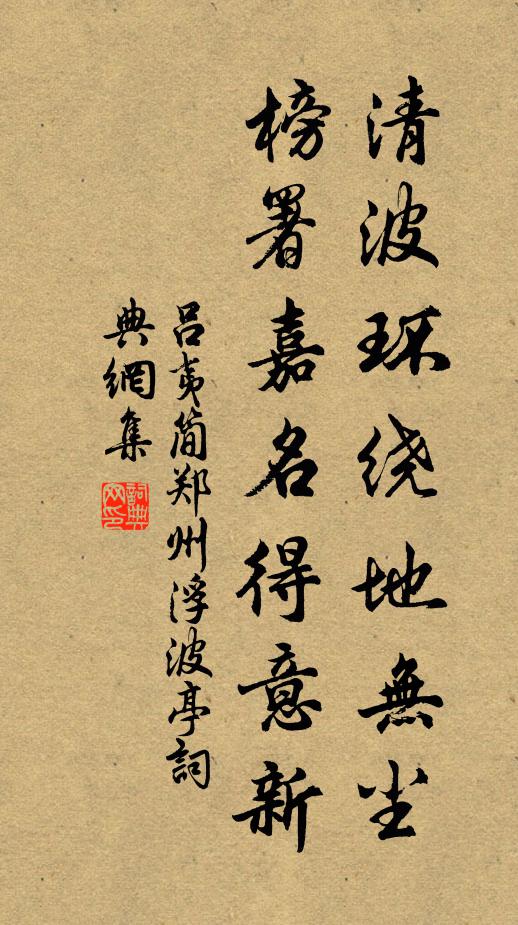 清波环绕地無尘
榜署嘉名得意新
吕夷简郑州浮波亭詞
典網集
詞典網印